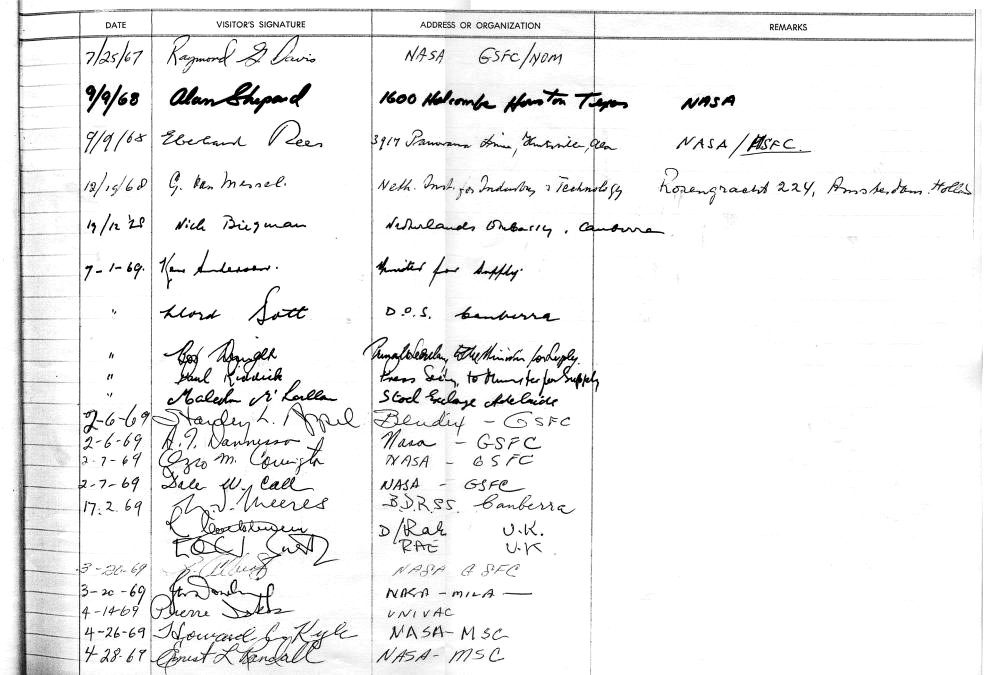 DATE VISITOR'S SIGNATURE ADDRESS OR ORGANIZATION REMARKS
7/25/67 Raymond G. Davis NASA GSFC/NOM
9/9/68 Alan Shepard 1600 Holcombe Houston Texas NASA
9/9/68 Eberhard Rees 3917 Panorama Drive, Huntsville, Ala NASA/MSFC.
12/19/68 G. Van Messel. Neth. Inst. for Industry & Technology Rozengracht 224, Amsterdam. Holland
19/12 '68 Nick Biegman Netherlands Embassy, Canberra
7-1-69. Ken Anderson. Minister for Supply.
" Lloyd Bott D.O.S. Canberra
" Private Secretary to the Minister for Supply.
" Paul Riddick Press Secy, to Minister for Supply
" Malcolm Stock Exchange Adelaide
2-6-69 Stanley L. Appel Bendix - GSFC
2-6-69 Nasa - GSFC
2-7-69 Ozro M. Covington NASA - GSFC
2-7-69 Dale W. Call NASA - GSFC
17.2.69 Meeres B.D.R.S.S. Canberra
D/Rae U.K.
RAE U.K
3-20-69 NASA GSFC
3-20-69 NASA-MILA
4-14-69 Pierre UNIVAC
4-26-69 Howard C. Kyle NASA-MSC
4-28-69 Ernest L Randall NASA-MSC